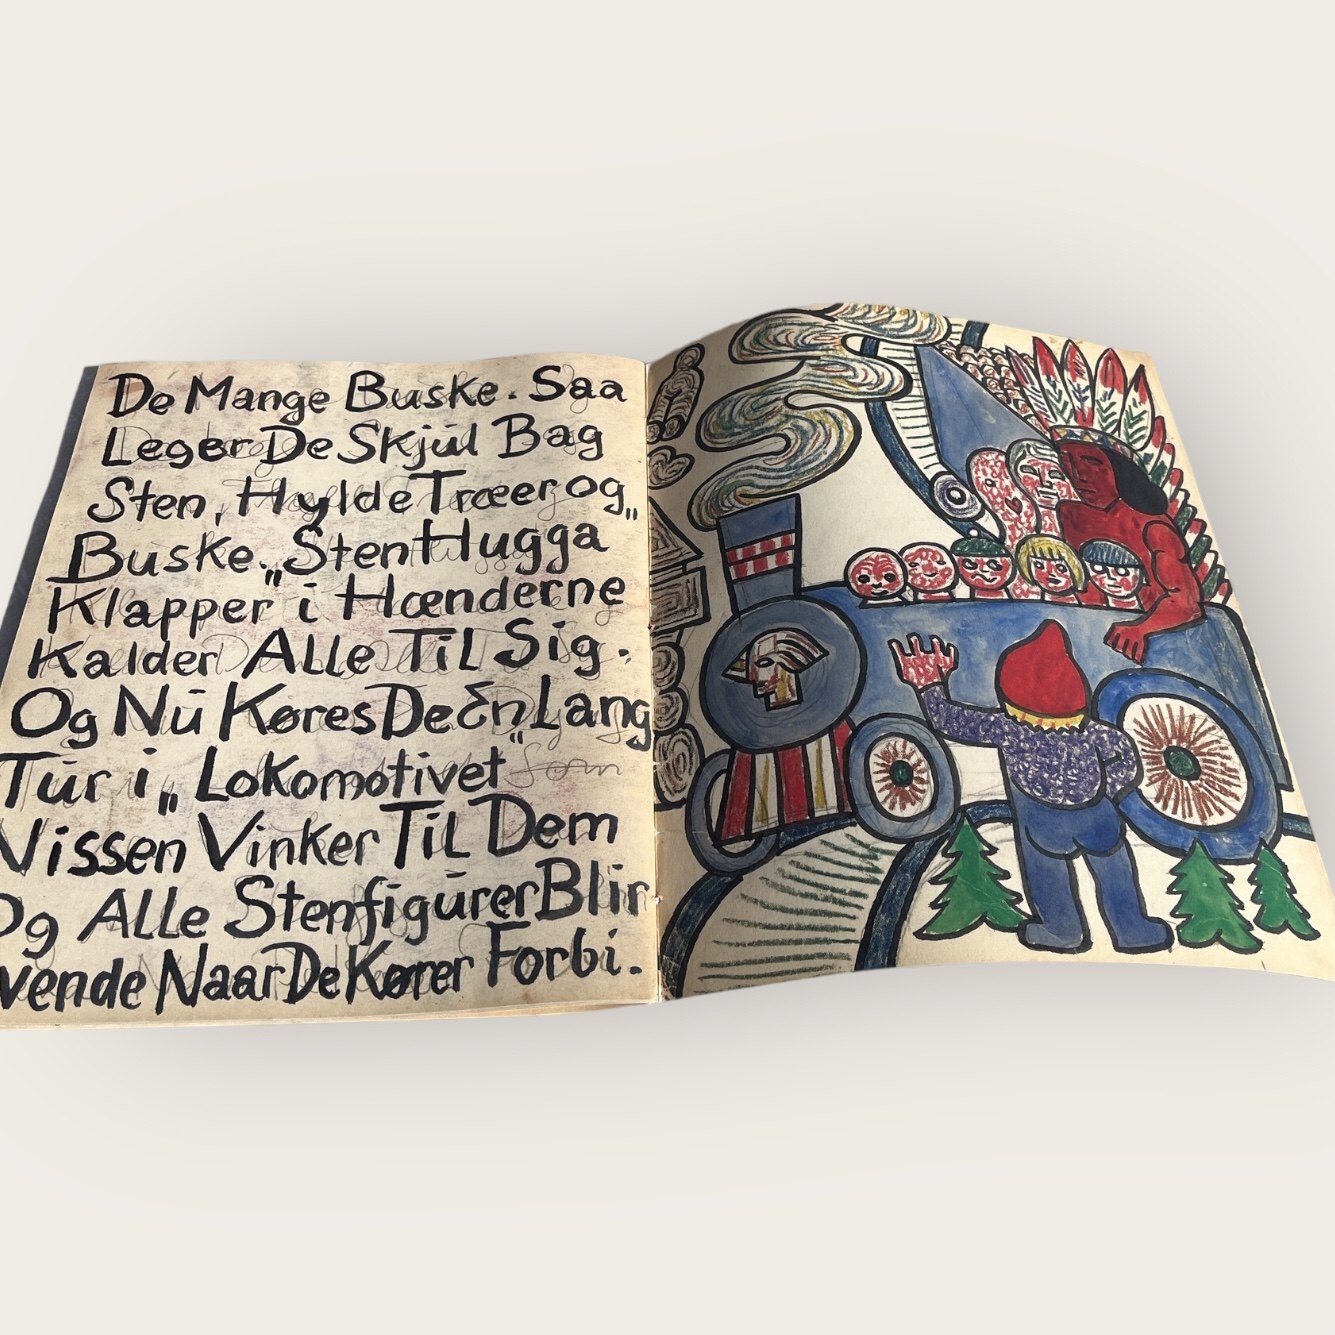 De Mange Buske. Saa
Leger De Skjul Bag
Sten, Hylde Træer og
Buske. „Sten Hugga"
Klapper i Hænderne
Kalder Alle Til Sig.
Og Nu Køres De En „Lang
Tur" i „Lokomotivet"
Nissen Vinker Til Dem
Og Alle Stenfigurer Blir
vende Naar De Kører Forbi.